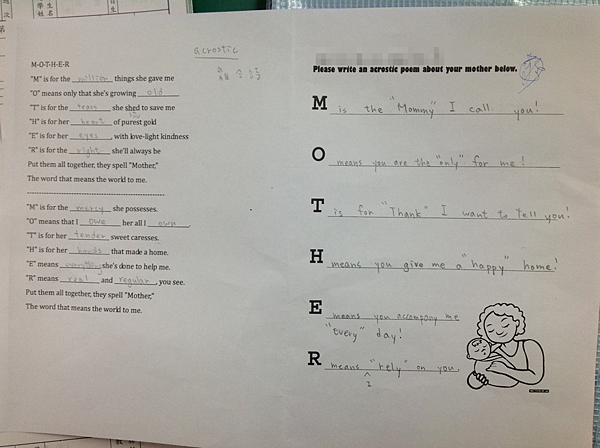 學生
姓名
acrostic
藏 合 詩
M-O-T-H-E-R
"M" is for the million things she gave me
"O" means only that she's growing old
"T" is for the tears she shed to save me
"H" is for her heart of purest gold
"E" is for her eyes, with love-light kindness
"R" is for the right she'll always be
Put them all together, they spell "Mother,"
The word that means the world to me.
"M" is for the mercy she possesses.
"O" means that I owe her all I own.
"T" is for her tender sweet caresses.
"H" is for her hands that made a home.
"E" means everything she's done to help me.
"R" means real and regular, you see.
Put them all together, they spell "Mother,"
The word that means the world to me.
Please write an acrostic poem about your mother below.
M is the "Mommy" I call you!
O means you are the "only" for me!
T is for "Thank" I want to tell you!
H means you give me a "happy" home!
E means you accompany me
"Every" day!
R means "rely" on you.
I